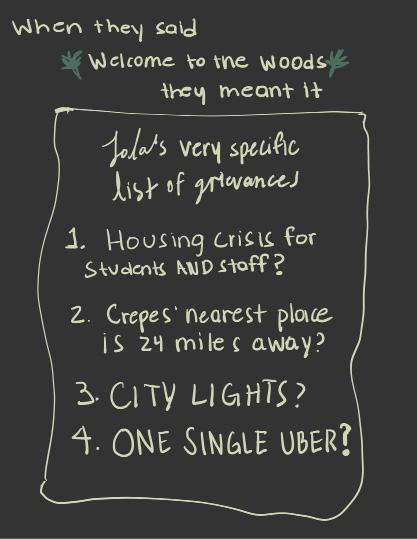 When they said
Welcome to the woods
they meant it
Lola's very specific
list of grievances
1. Housing crisis for
students AND staff?
2. Crepes' nearest place
is 24 miles away?
3. CITY LIGHTS?
4. ONE SINGLE UBER?